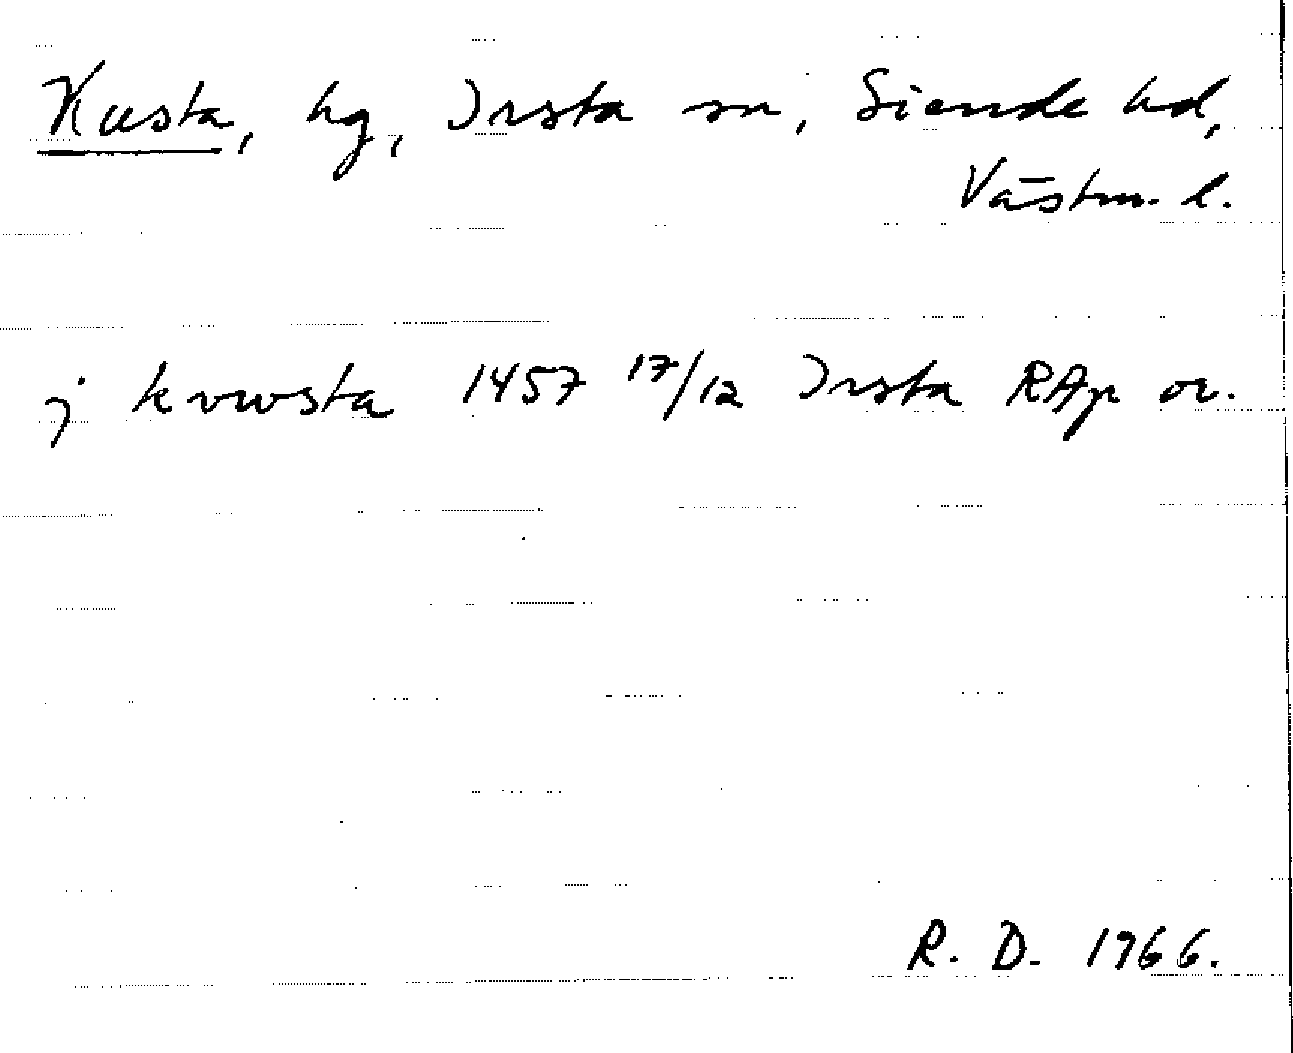 Kusta, hg, Irsta sn, Siende hd,
Västm. l.
j kvwsta 1457 17/12 Irsta RAp or.
R. D. 1966.